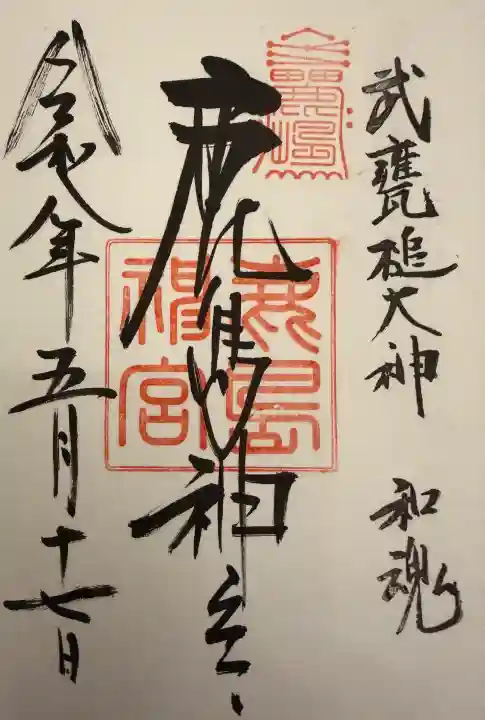 武甕槌大神 和魂
鹿島神宮
鹿島神宮
令和八年五月十七日